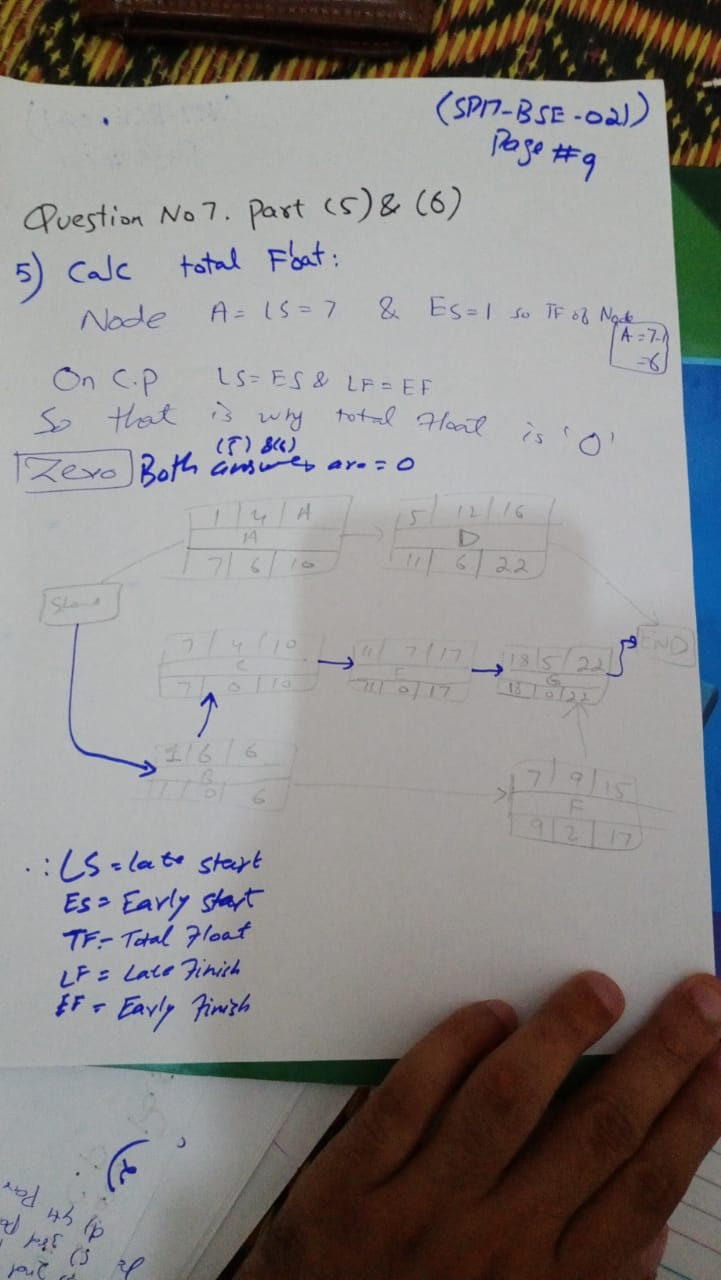 (SPM-BSE-021)
Page #9
Question No 7. Part (5) & (6)
5) Calc total Float:
Node A = LS = 7 & ES = 1 so TF of Node
A = 7-1
= 6
On C.P LS = ES & LF = EF
So that is why total Float is '0'
(5) & (6)
Zero Both answers are = 0
1 | 4 | A
A
7 | 6 | 10
5 | 12 | 16
D
11 | 6 | 22
Start
END
7 | 4 | 10
C
7 | 0 | 10
11 | 7 | 17
11 | 0 | 17
18 | 5 | 22
G
18 | 0 | 22
1 | 6 | 6
B
0 | 6
7 | 9 | 15
F
9 | 2 | 17
∴ LS = late start
ES = Early start
TF = Total Float
LF = Late Finish
EF = Early Finish
2)